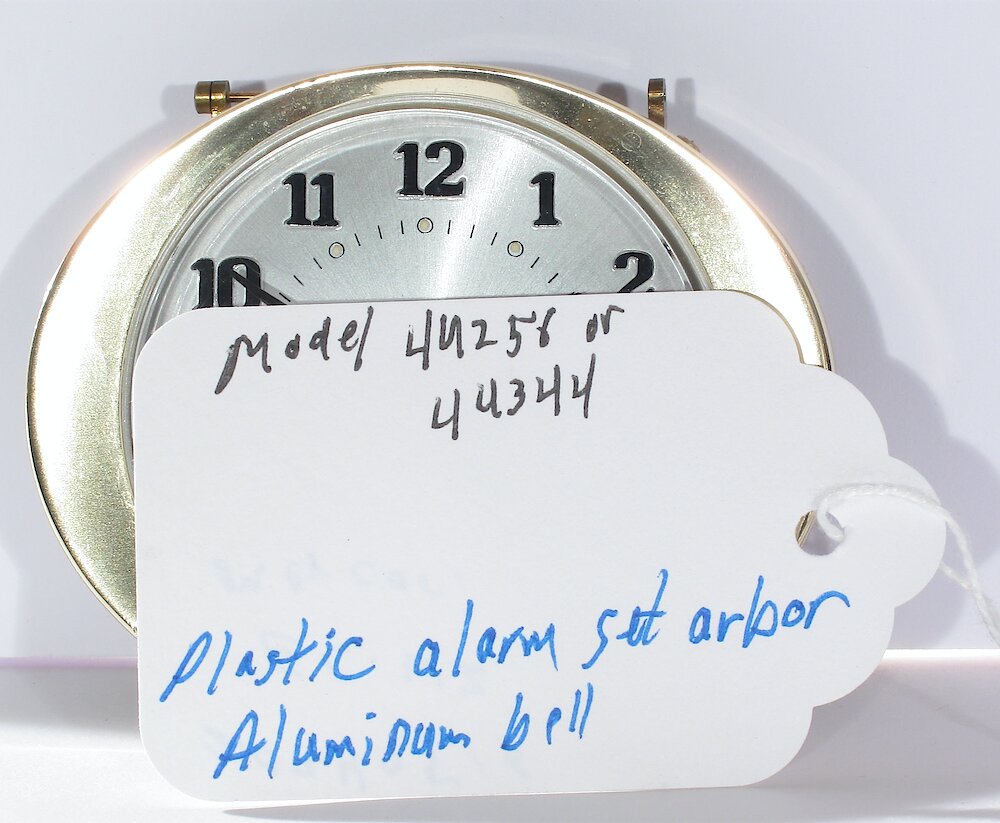 12
11 1
10 2
Model 44258 or
44344
Plastic alarm set arbor
Aluminum bell